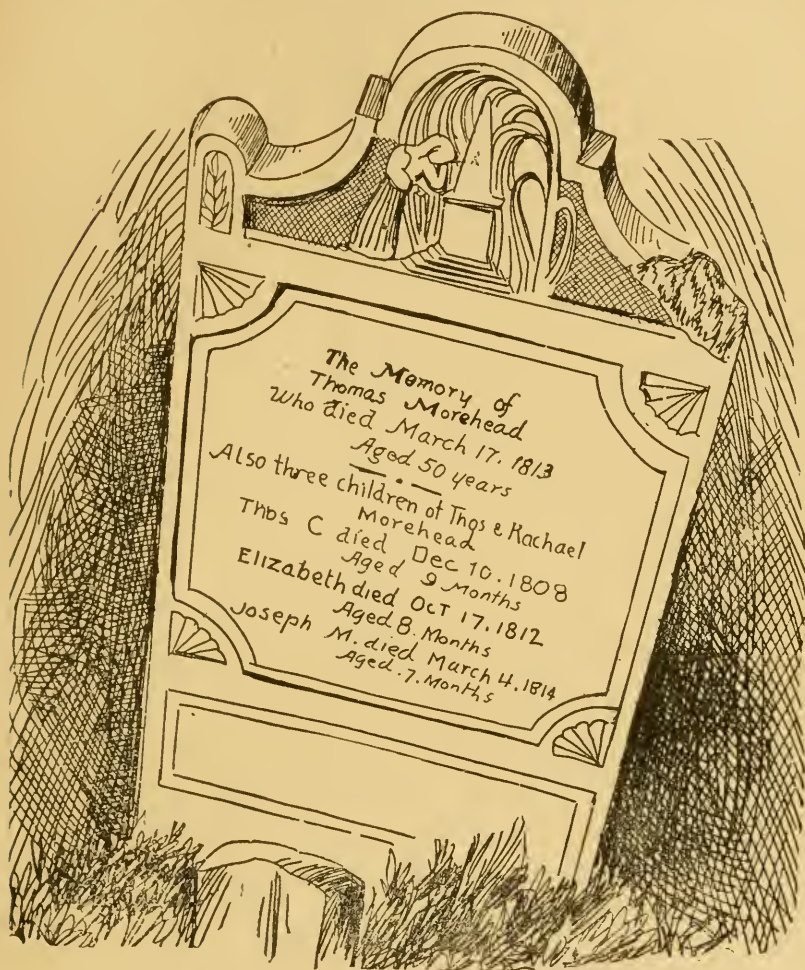 The Memory of
Thomas Morehead
Who died March 17. 1813
Aged 50 years
Also three children of Thos & Rachael
Morehead
Thos C died Dec 10. 1808
Aged 9 Months
Elizabeth died Oct 17. 1812
Aged 8. Months
Joseph M. died March 4. 1814
Aged .7. Months